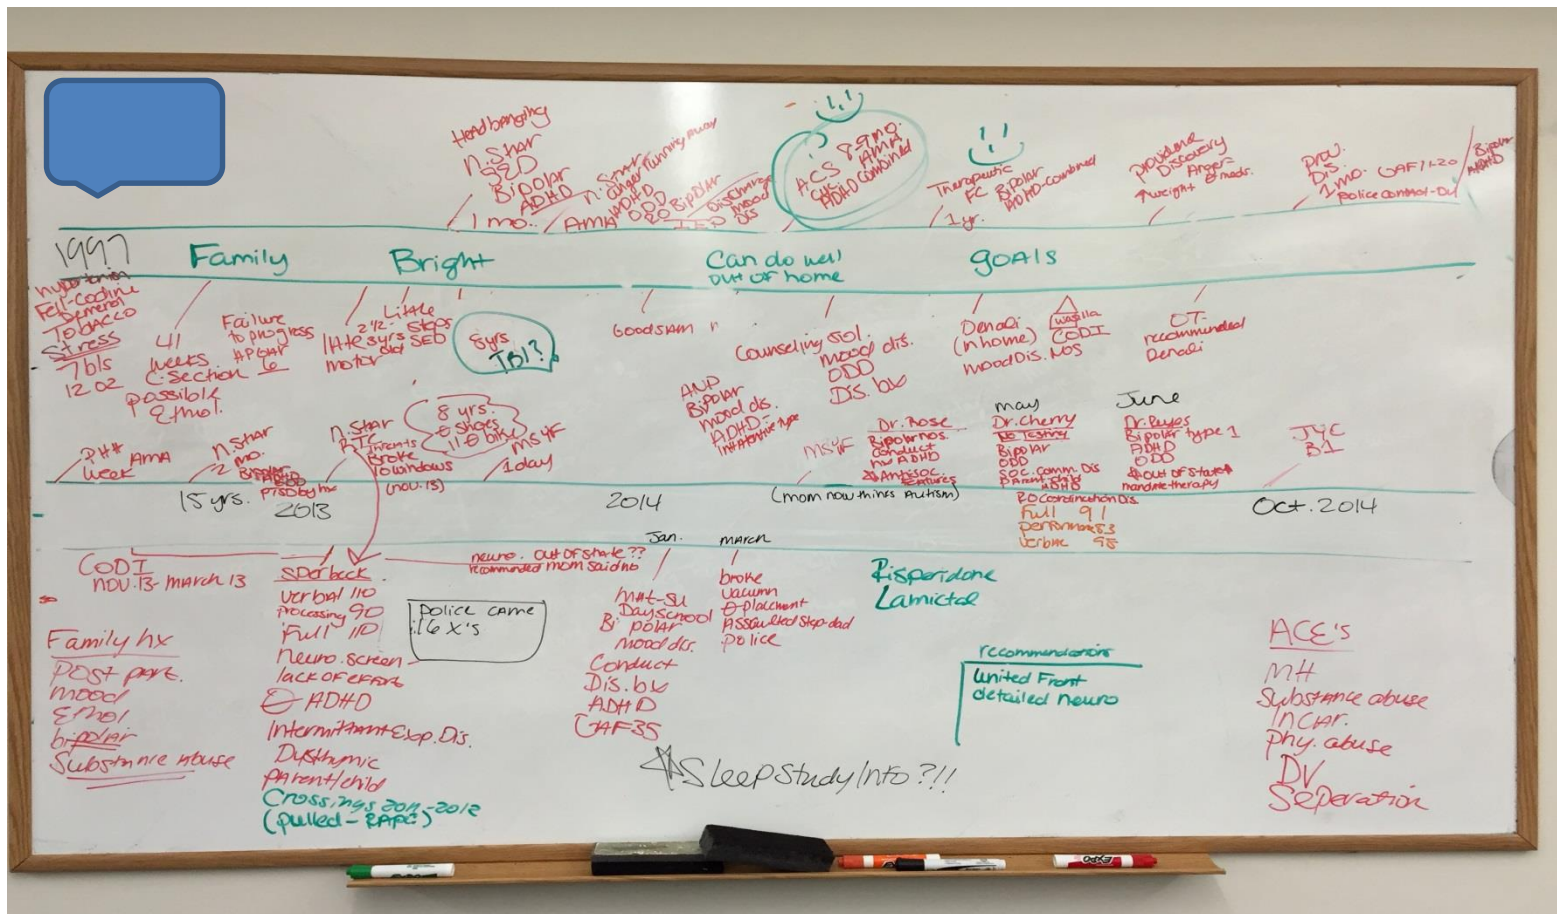 Headbanging
N. Star
SED
Bipolar
ADHD
1 mo..
N. Star
danger running away
ADHD
ODD
AMA
RO Bipolar
IED
Discharge
mood
dis
ACS 8-9 mo.
AMA
ADHD combined
Therapeutic
FC Bipolar
ADHD-combined
1 yr.
providence
Discovery
Anger-
↑ weight ∅ meds.
Prov.
Dis
1 mo. GAF 11-20
police control-
Bipolar
ADHD
1997
Family
Bright
Can do well
out of home
goals
hypertension
Fell-Codine
Demerol
Tobacco
Stress
7 lbs
12 oz
41
weeks
C.Section
possible
Ethol.
Failure
to progress
APGAR
6
2½-
late 3yrs
motor old
Little
steps
SED
8yrs
TBI?
Goodsiam
Counseling Sol.
mood dis.
ODD
Dis. bx
Denali
(in home)
mood Dis. NOS
Wasilla
CODI
OT-
recommended
Denali
PH# AMA
week
N. Star
2 mo.
Bipolar
PTSD by hx
N. Star
RTC
Threats
Broke
10 windows
(nov. 15)
8 yrs.
∅ shoes
11 ∅ bike
MSYF
1 day
ANP
Bipolar
mood dis.
ADHD-
Inattentive type
MSYF
Dr. Rose
Bipolar nos.
conduct
hx ADHD
Antisoc.
features
may
Dr. Cherry
No Testing
Bipolar
ODD
Soc. comm. Dis
parent-child
ADHD
RO Coordination Dis.
Full 91
performance 83
verbal 98
June
Dr. Reyes
Bipolar type 1
ADHD
ODD
out of state
mandate therapy
JYC
B1
15 yrs.
2013
2014
(mom now thinks Autism)
Oct. 2014
CODI
nov. 13- march 13
Sperbeck
verbal 110
processing 90
Full 110
Neuro. screen
lack of effort
∅ ADHD
Intermittant Exp. Dis.
Dysthymic
parent/child
Crossings 2011-2012
(pulled- RAPC)
neuro. out of state??
recommended mom said no
police came
16 x's
Jan.
Mat-su
Day school
Bi polar
mood dis.
Conduct
Dis. bx
ADHD
GAF 35
march
broke
vacumn
∅ placement
Assaulted step-dad
police
Risperidone
Lamictal
recommendations
united Front
detailed neuro
Family hx
Post part.
mood
Ethol
bipolar
Substance abuse
Sleep Study Info?!!
ACE's
MH
Substance abuse
Incar.
phy. abuse
DV
Seperation
EXPO